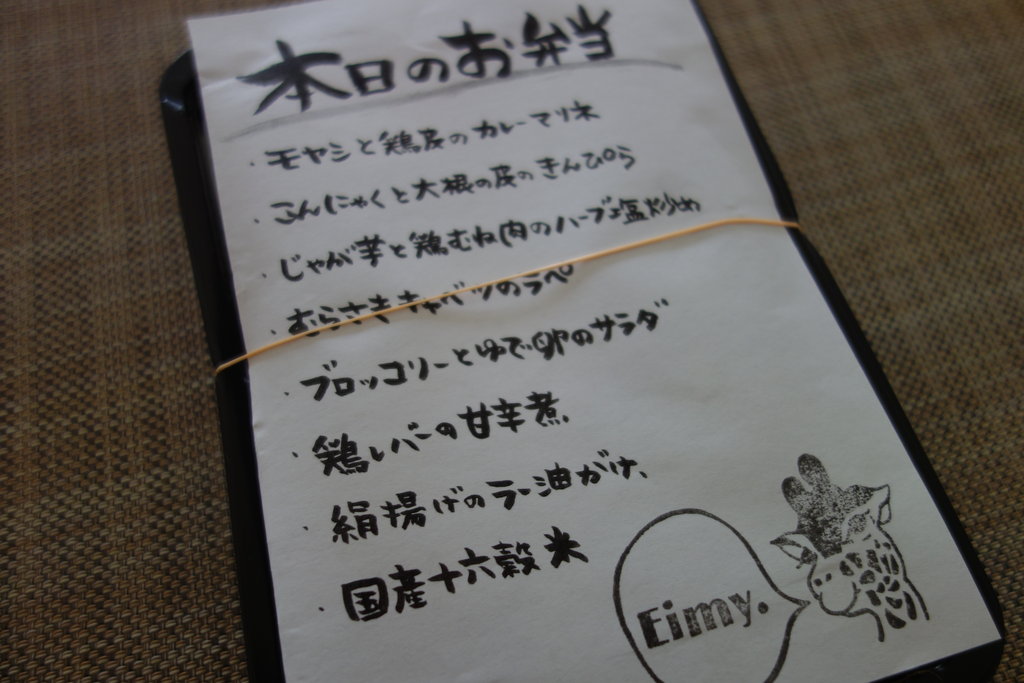 本日のお弁当
・モヤシと鶏皮のカレーマリネ
・こんにゃくと大根の皮のきんぴら
・じゃが芋と鶏むね肉のハーブ塩炒め
・むらさきキャベツのラペ
・ブロッコリーとゆで卵のサラダ
・鶏レバーの甘辛煮
・絹揚げのラー油がけ
・国産十六穀米
Eimy.